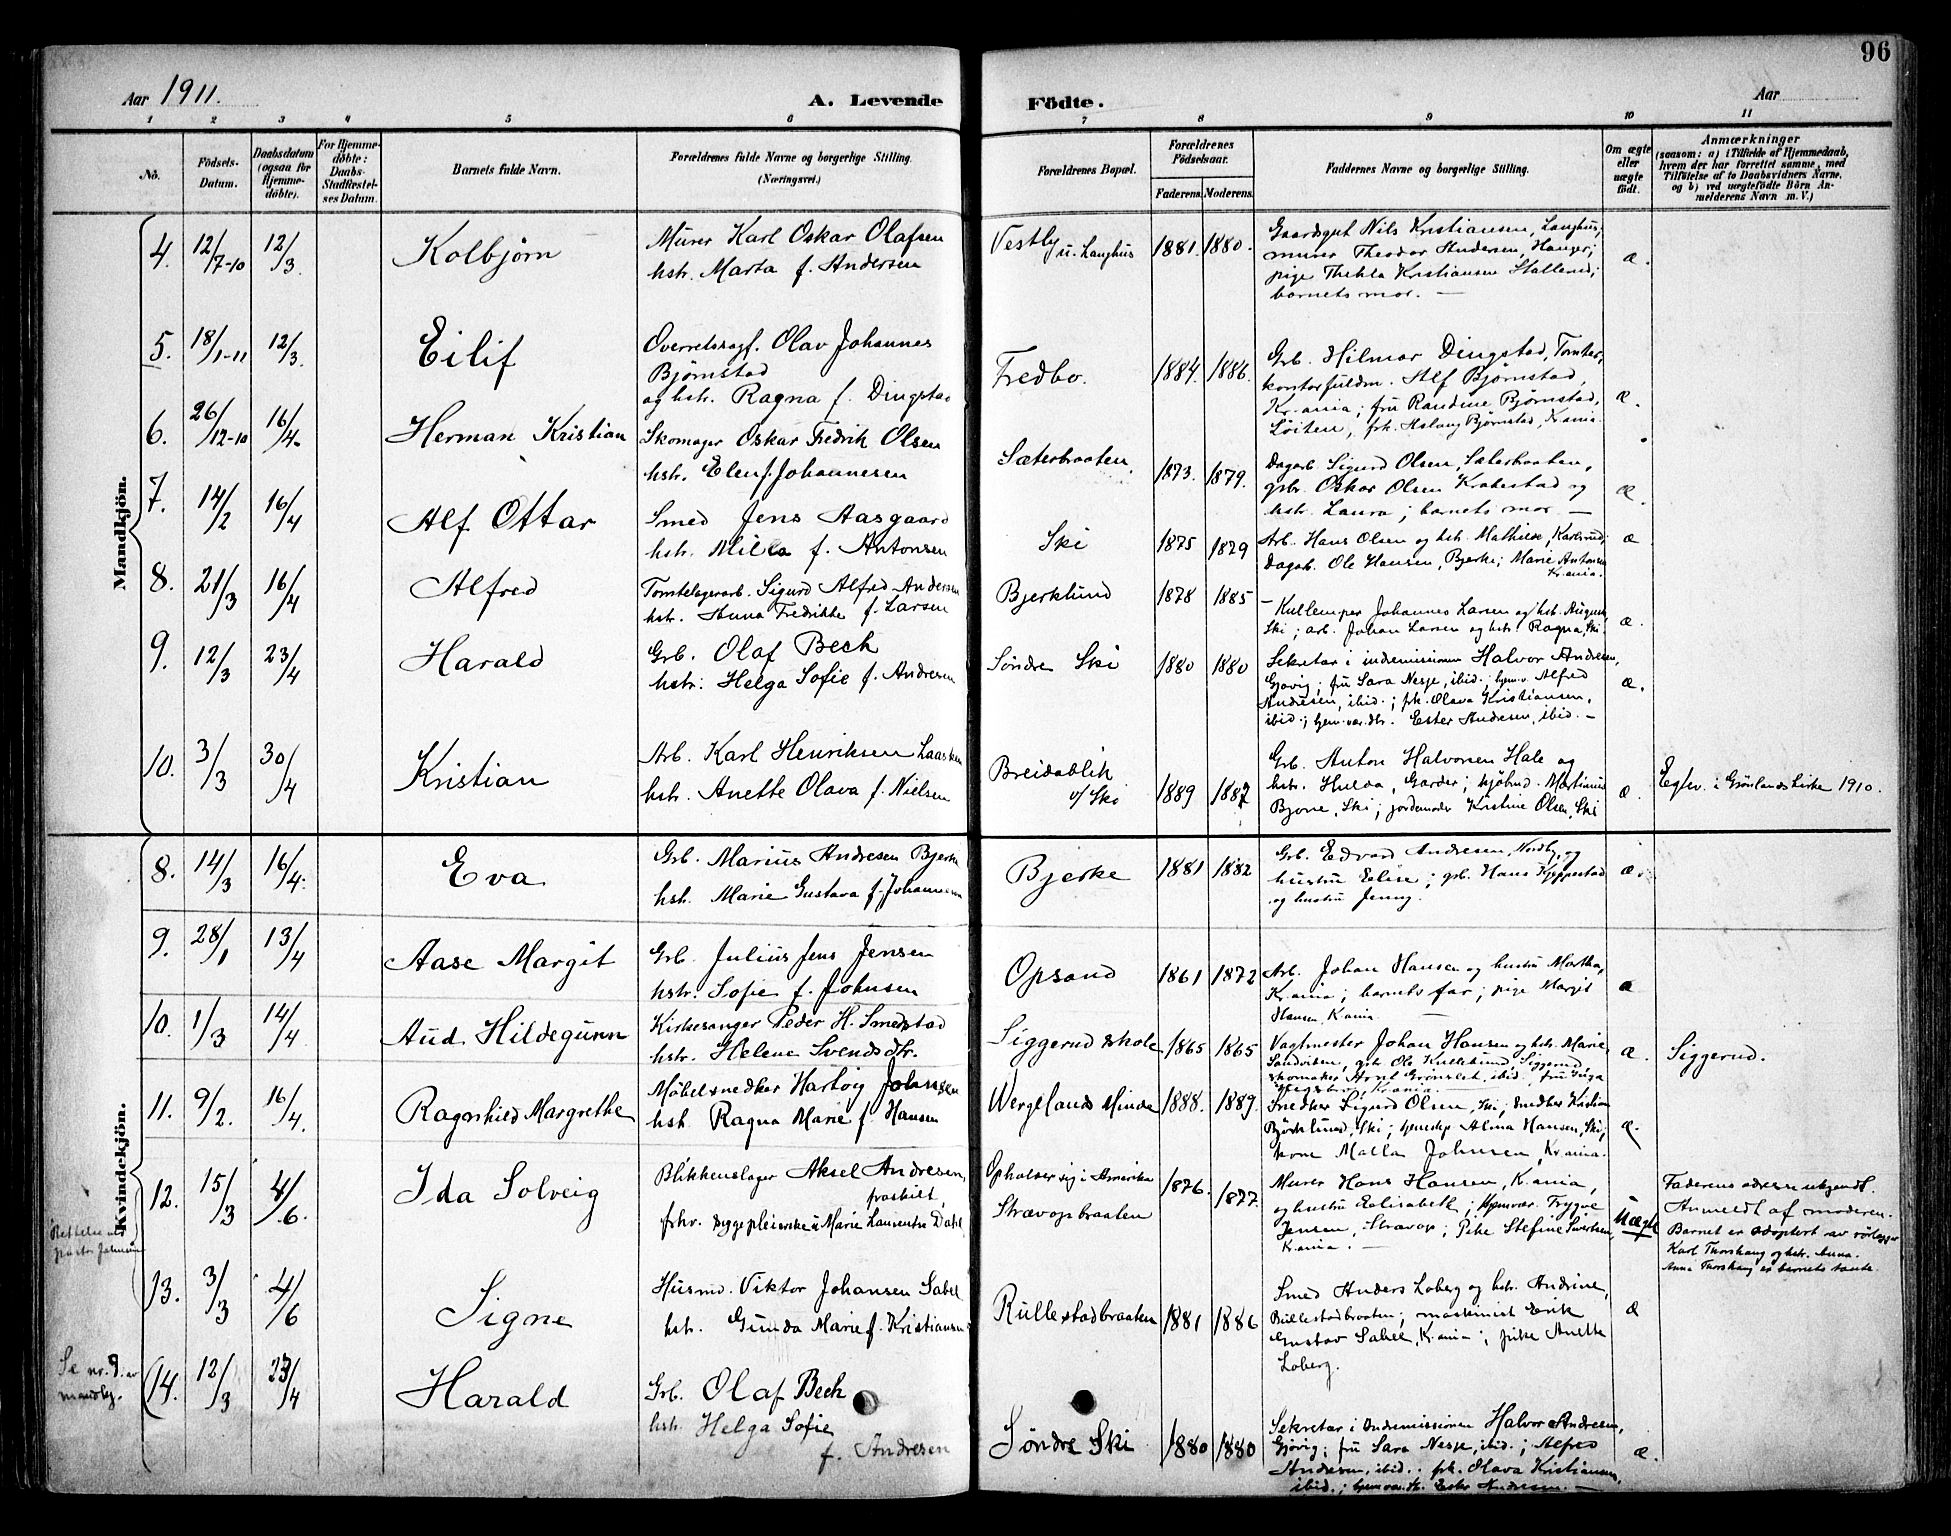 96
Aar 1911.
A. Levende Födte.
Aar
1 2 3 4 5 6 7 8 9 10 11
No.
Födsels-Datum.
Daabsdatum (ogsaa for Hjemme-döbte).
For Hjemme-döbte: Daabs-Stadfæstel-ses Datum.
Barnets fulde Navn.
Forældrenes fulde Navne og borgerlige Stilling. (Næringsvei.)
Forældrenes Bopæl.
Forældrenes Födselsaar.
Faderens. Moderens.
Faddernes Navne og borgerlige Stilling.
Om ægte eller uægte födt.
Anmærkninger
(saasom: a) i Tilfælde af Hjemmedaab,
hvem der har forrettet samme, med
Tilföielse af to Daabsvidners Navne,
og b) ved uægtefödte Börn An-
melderens Navn m. V.)
Mandkjön.
4. 12/7-10 12/3. Kolbjørn
Murer Karl Oskar Olafsen
hstr. Marta f. Andersen
Vestby u. Langhus 1881. 1880.
Gaardsgut Nils Kristiansen, Langhus;
murer Theodor Andersen, Hauger;
pige Thekla Kristiansen Stallerud;
barnets mor. —
æ.
5. 18/1-11 12/3. Eilif
Overretssagf. Olav Johannes
Bjørnstad
og hstr. Ragna f. Dingstad
Fredbo. 1884. 1886.
Grb. Hilmar Dingstad, Tomter,
kontorfuldm. Alf Bjørnstad,
Kr.ania; fru Randine Bjørnstad,
Løiten, frk. Aslaug Bjørnstad, Kr.ania.
æ.
6. 26/12-10 16/4. Herman Kristian
Skomager Oskar Fredrik Olsen
hstr. Elen f. Johannesen
Sæterbraaten. 1873. 1879.
Dagarb. Sigurd Olsen, Sæterbraaten,
grbr. Oskar Olsen Krakestad og
hstr. Laura; barnets mor —
æ.
7. 14/2 16/4 Alf Ottar
Smed Jens Aasgaard
hstr. Milla f. Antonsen
Ski 1875 1879
Arb. Hans Olsen og hstr. Mathilde, Karlsrud;
Dagarb. Ole Hansen, Bjerke; Marie Antonsen
Kr.ania.
æ
8. 21/3 16/4 Alfred
Tomtelagerarb. Sigurd Alfred Andersen
hstr. Anna Fredrikke f. Larsen
Bjerklund 1878 1885
— Kullemper Johannes Larsen og hst. Augusta,
Ski; arb. Johan Larsen og hstr. Ragna, Ski.
æ.
9. 12/3 23/4 Harald
Grb. Olaf Bech
hstr. Helga Sofie f. Andresen
Søndre Ski 1880 1880
Sekretær i indremissionen Halvor Andresen,
Gjøvig; fru Sara Nesje, ibid.; hjem.v. Alfred
Andresen, ibid.; frk. Olava Kristiansen,
ibid.; hjem.vær. dtr. Ester Andresen, ibid. —
æ.
10. 3/3 30/4 Kristian
Arb. Karl Henriksen
hstr. Anette Olava f. Nielsen
Breidablik
v/ Ski 1889 1887
Grb. Anton Halvorsen Hale og
hstr. Hulda, Garder; kjøbmd. Martinius
Bjone, Ski; jordemoder Kristine Olsen, Ski
æ.
Egtev. i Grønlands kirke 1910.
Kvindekjön.
8. 14/3 16/4. Eva
Grb. Marius Andresen Bjerke
hstr. Marie Gustava f. Johannesen
Bjerke 1881 1882
Grb. Edvard Andresen, Nordby, og
hustru Elise; grb. Hans Kjeppestad
og hustru Jenny.
æ.
9. 28/1 13/4 Aase Margit
Grb. Julius Jens Jensen
hstr. Sofie f. Johnsen
Opsand 1861 1872
Arb. Johan Hansen og hustru Martha,
Kr.ania; barnets far; pige Margit
Hansen, Kr.ania —
æ
10. 1/3 14/4. Aud Hildegunn
Kirkesanger Peder H. Smedstad
hstr. Helene Svendsdtr.
Siggerud skole 1865 1865
Vagtmester Johan Hansen og hstr. Marie,
Sandviken, grb. Ole Kullebund, Siggerud
skomaker Arnt Grønslet, ibid. fru Inga
Kr.ania.
æ.
Siggerud.
11. 9/2. 16/4. Ragnhild Margrethe
Møbelsnedker Hartvig Johnsen
hstr. Ragna Marie f. Hansen
Wergelands Minde 1888. 1889.
Snedker Sigurd Olsen, Ski; snedker Kristian
Bjørklund, Ski; tjeneste Alma Hansen, Ski;
kone Malla Johnsen, Kr.ania.
æ.
Rettelse ved
pastor Johnsen
12. 15/3 4/6. Ida Solveig
Blikkenslager Aksel Andresen,
fraskilt,
frhv. sygepleierske Marie Laurentze Dahl
Opholder sig i Amerika
Stravopbraaten 1876. 1877.
Murer Hans Hansen, Kr.ania,
og hustru Elisabeth; hjemvær. Trygve
Jensen, Stravop; Pike Stefine Sivertsen,
Kr.ania. —
Uægte
Faderens adresse ukjendt.
Anmeldt af moderen.
Barnet er adoptert av rørlegger
Karl Thorshaug og hstr. Anna.
Anna Thorshaug er barnets tante.
13. 3/3 4/6 Signe
Husmd. Viktor Johansen Sabel
hstr. Gunda Marie f. Kristiansen
Rullestadbraaten 1881 1886
Smed Anders Loberg og hstr. Andrine,
Rullestadbraaten; maskinist Erik
Gustav Sabel, Kr.ania; pike Anette
Loberg.
æ
Se nr. 9. av
mandkj.
(14. 12/3 23/4 Harald
Grb. Olaf Bech
hstr. Helga Sofie
f. Andresen
Søndre Ski 1880 1880
Sekretær i Indremissionen Halvor Andresen,
Gjøvig; fru Sara Nesje, ibid.; Alfred
Andresen, ibid.. frk. Olava Kristiansen,
ibid.; hjem vær. dt. Ester Andresen. —
æ.